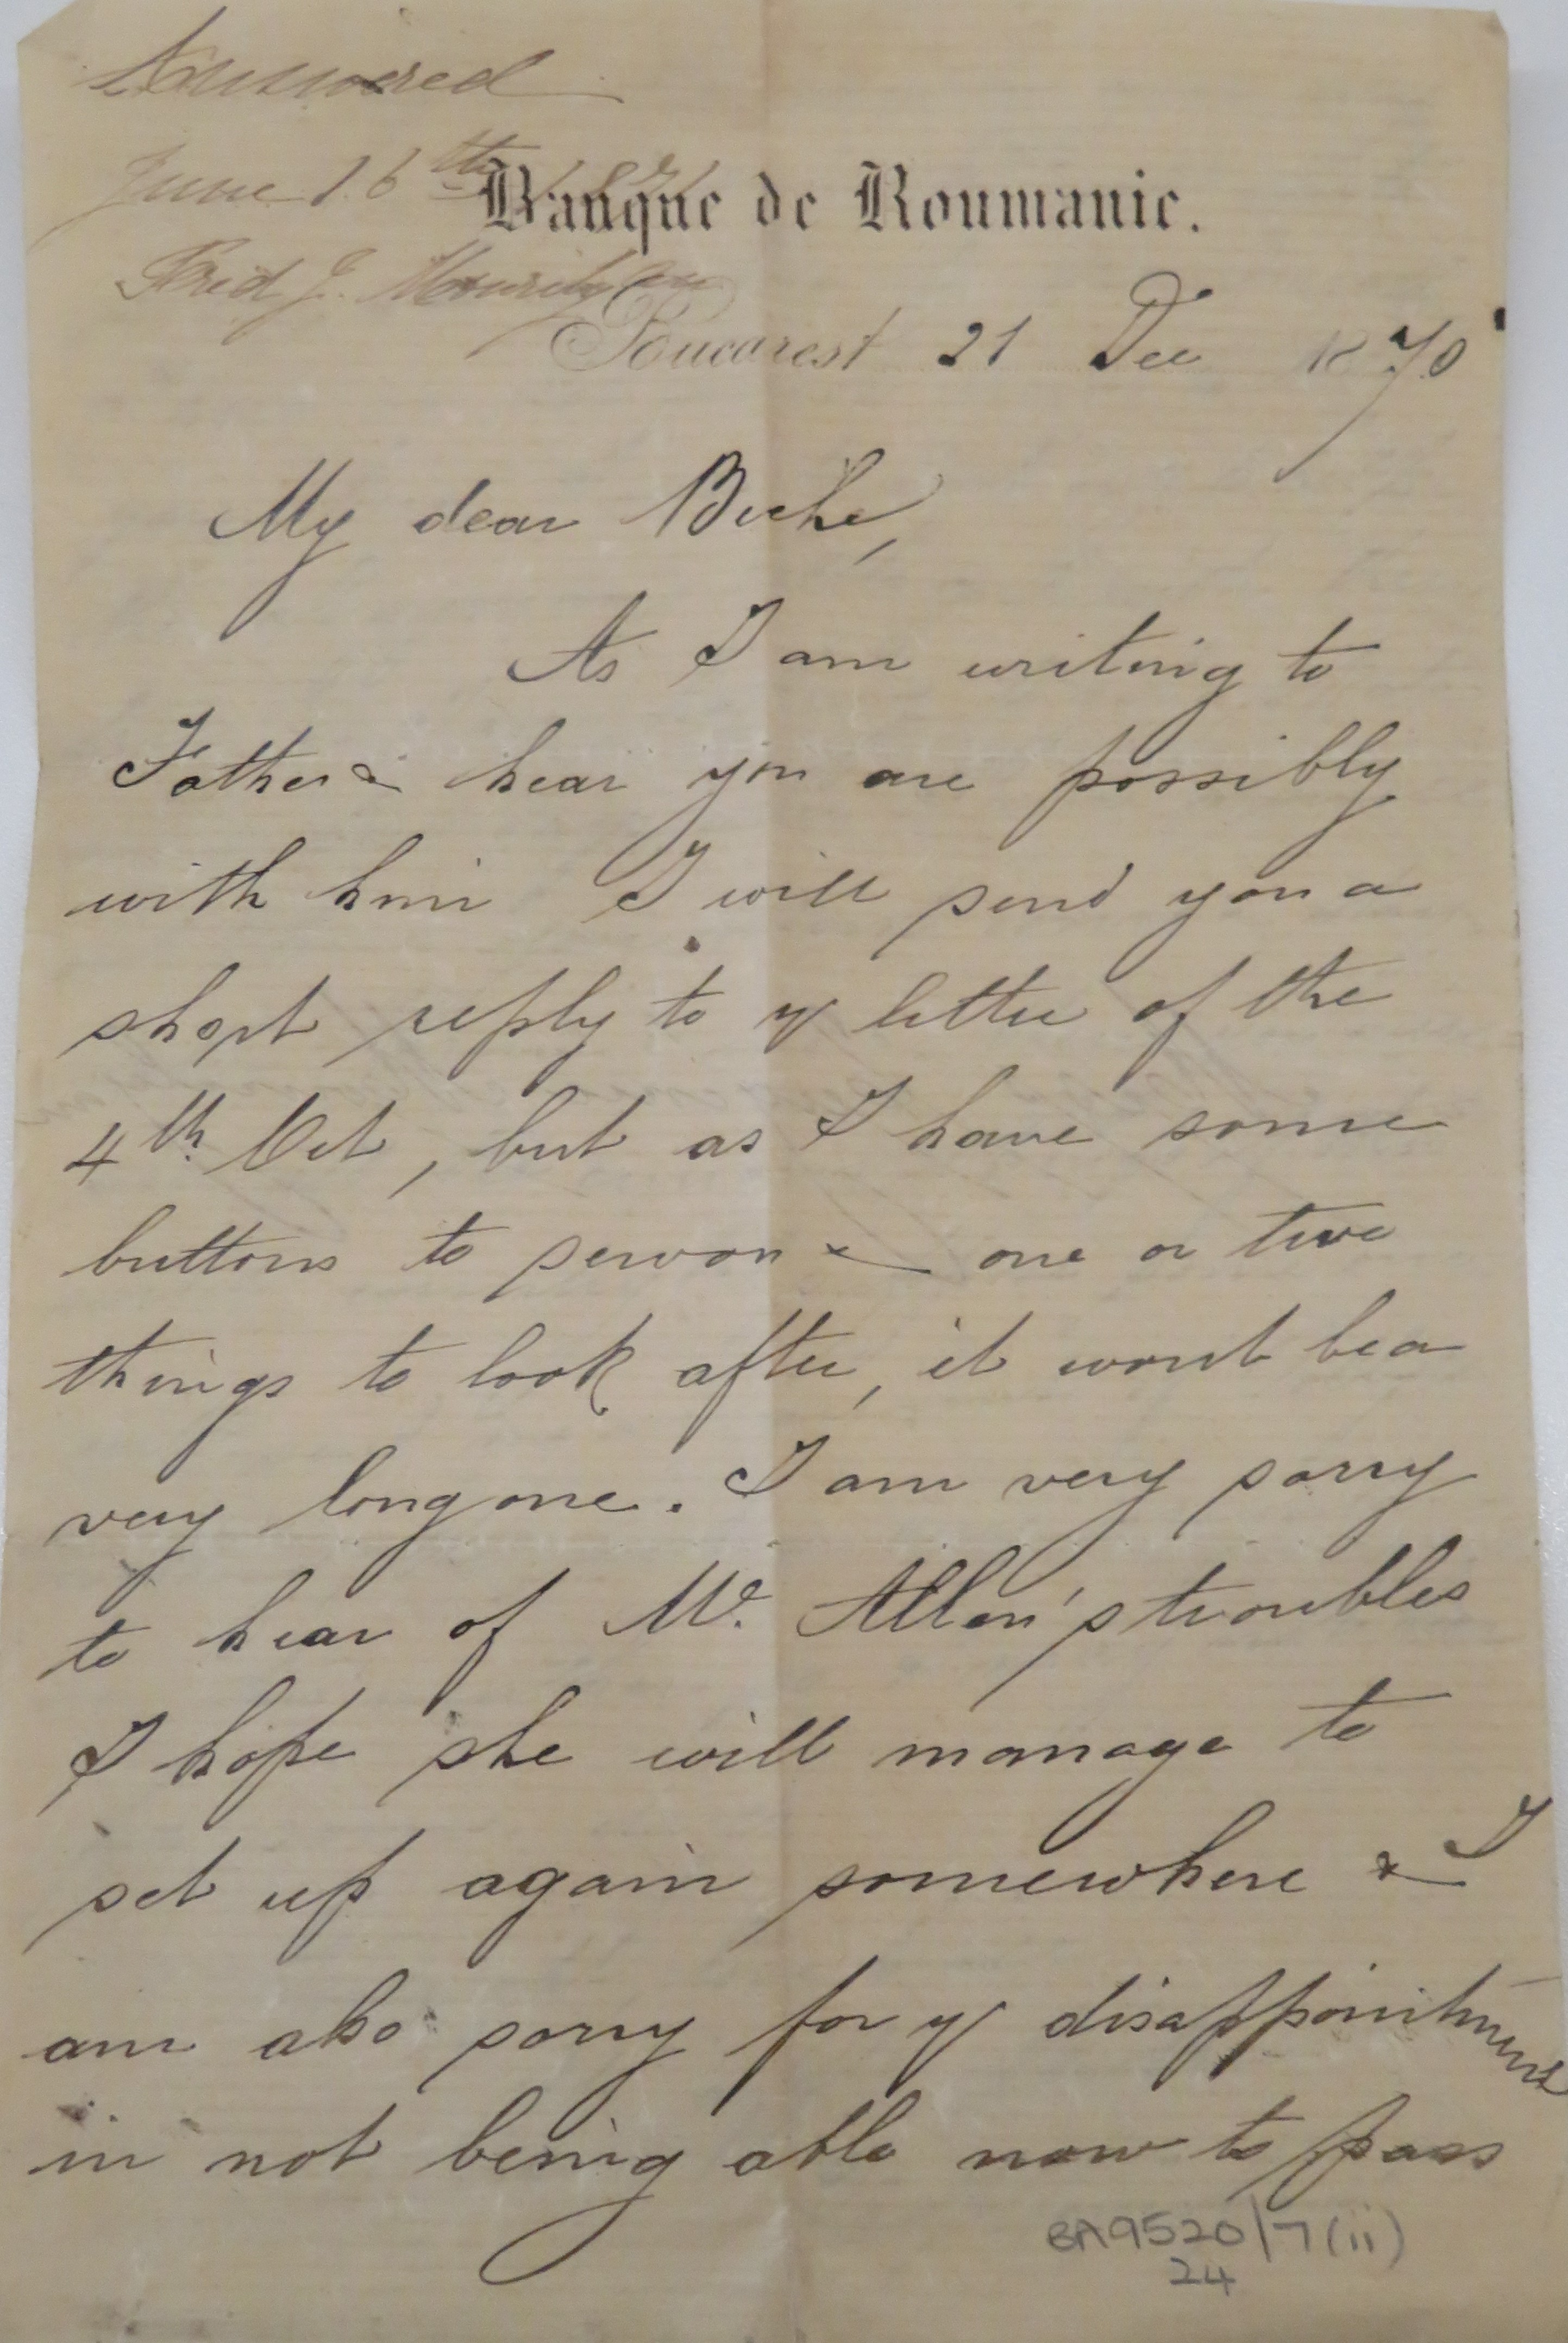 Answered
June 16th 1871
Fred J. Mouritzen
Banque de Roumanie.
Bucarest 21 Dec 1870
My dear Beche,
As I am writing to
Father & hear you are possibly
with him I will send you a
short reply to yr letter of the
4th Oct, but as I have some
buttons to sew on & one or two
things to look after, it wont be a
very long one. I am very sorry
to hear of Mrs. Allen's troubles
I hope she will manage to
set up again somewhere & I
am also sorry for yr disappointment
in not being able now to pass
BA9520/7(ii)
24